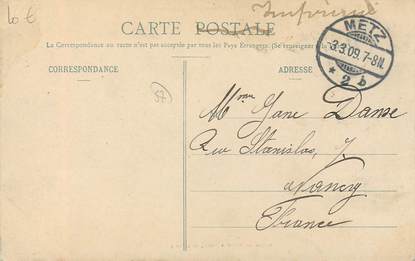 10 €
Imprimé
CARTE POSTALE
La Correspondance au verso n'est pas acceptée par tous les Pays Étrangers. (Se renseigner à la
CORRESPONDANCE
ADRESSE
METZ
3.3.09.7-8N.
* 2 b
57
Danse
Rue Stanislas, 7
à Nancy
France